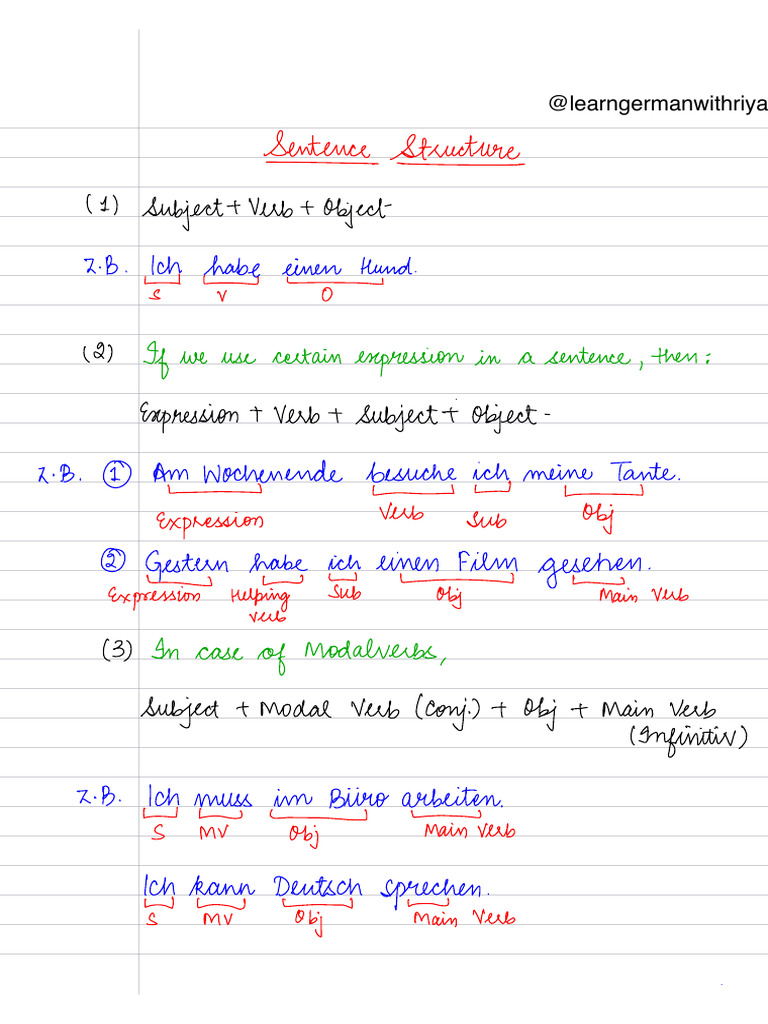 @learngermanwithriya
Sentence Structure
(1) Subject + Verb + Object
Z.B. Ich habe einen Hund.
S V O
(2) If we use certain expression in a sentence, then:
Expression + Verb + Subject + Object
Z.B. ① Am Wochenende besuche ich meine Tante.
Expression Verb Sub Obj
② Gestern habe ich einen Film gesehen.
Expression Helping Sub Obj Main Verb
verb
(3) In case of Modalverbs,
Subject + Modal Verb (Conj.) + Obj + Main Verb
(Infinitiv)
Z.B. Ich muss im Büro arbeiten.
S MV Obj Main Verb
Ich kann Deutsch sprechen.
S MV Obj Main Verb